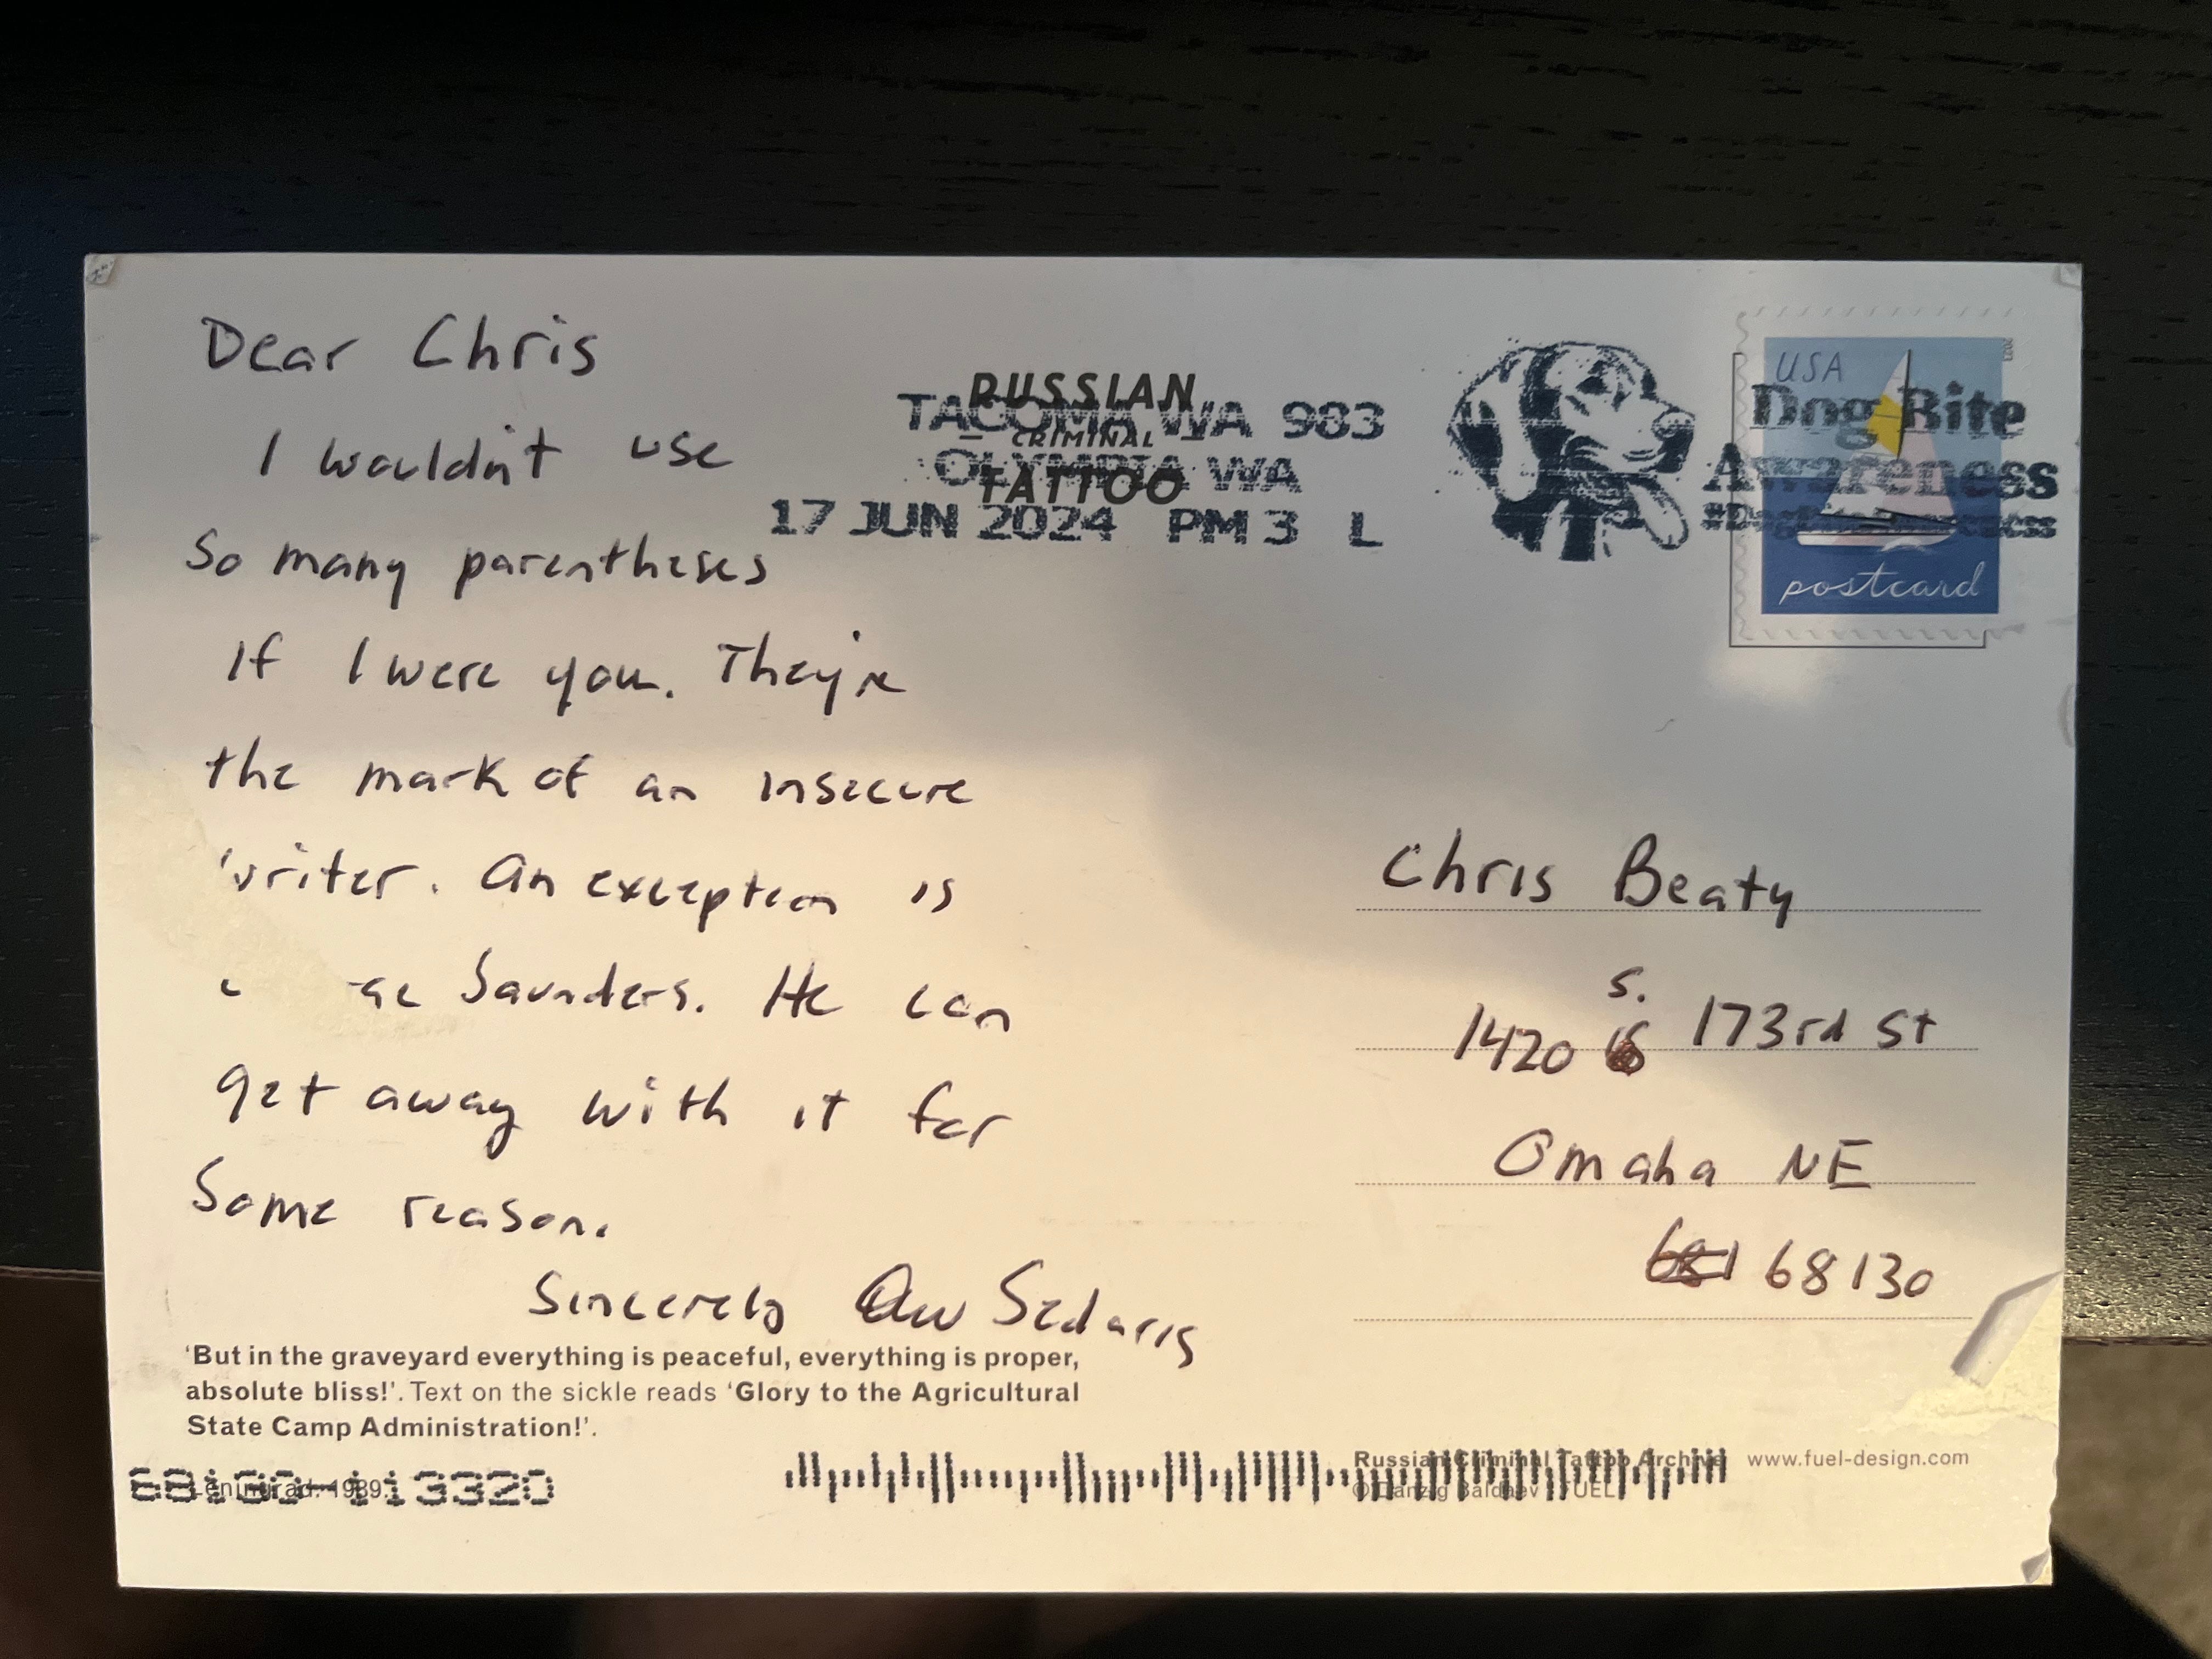 Dear Chris
I wouldn't use
So many parentheses
If I were you. They're
the mark of an insecure
writer. An exception is
Saunders. He can
get away with it for
Some reason.
Sincerely Sedaris
'But in the graveyard everything is peaceful, everything is proper,
absolute bliss!'. Text on the sickle reads 'Glory to the Agricultural
State Camp Administration!'.
Leningrad. 1989.
RUSSIAN
CRIMINAL
TATTOO
TACOMA WA 983
OLYMPIA WA
17 JUN 2024 PM 3 L
USA
2023
postcard
Dog Bite
Awareness
Chris Beaty
S.
1420 173rd St
Omaha NE
68130
Russian Criminal Tattoo Archive www.fuel-design.com
© Danzig Baldaev FUEL